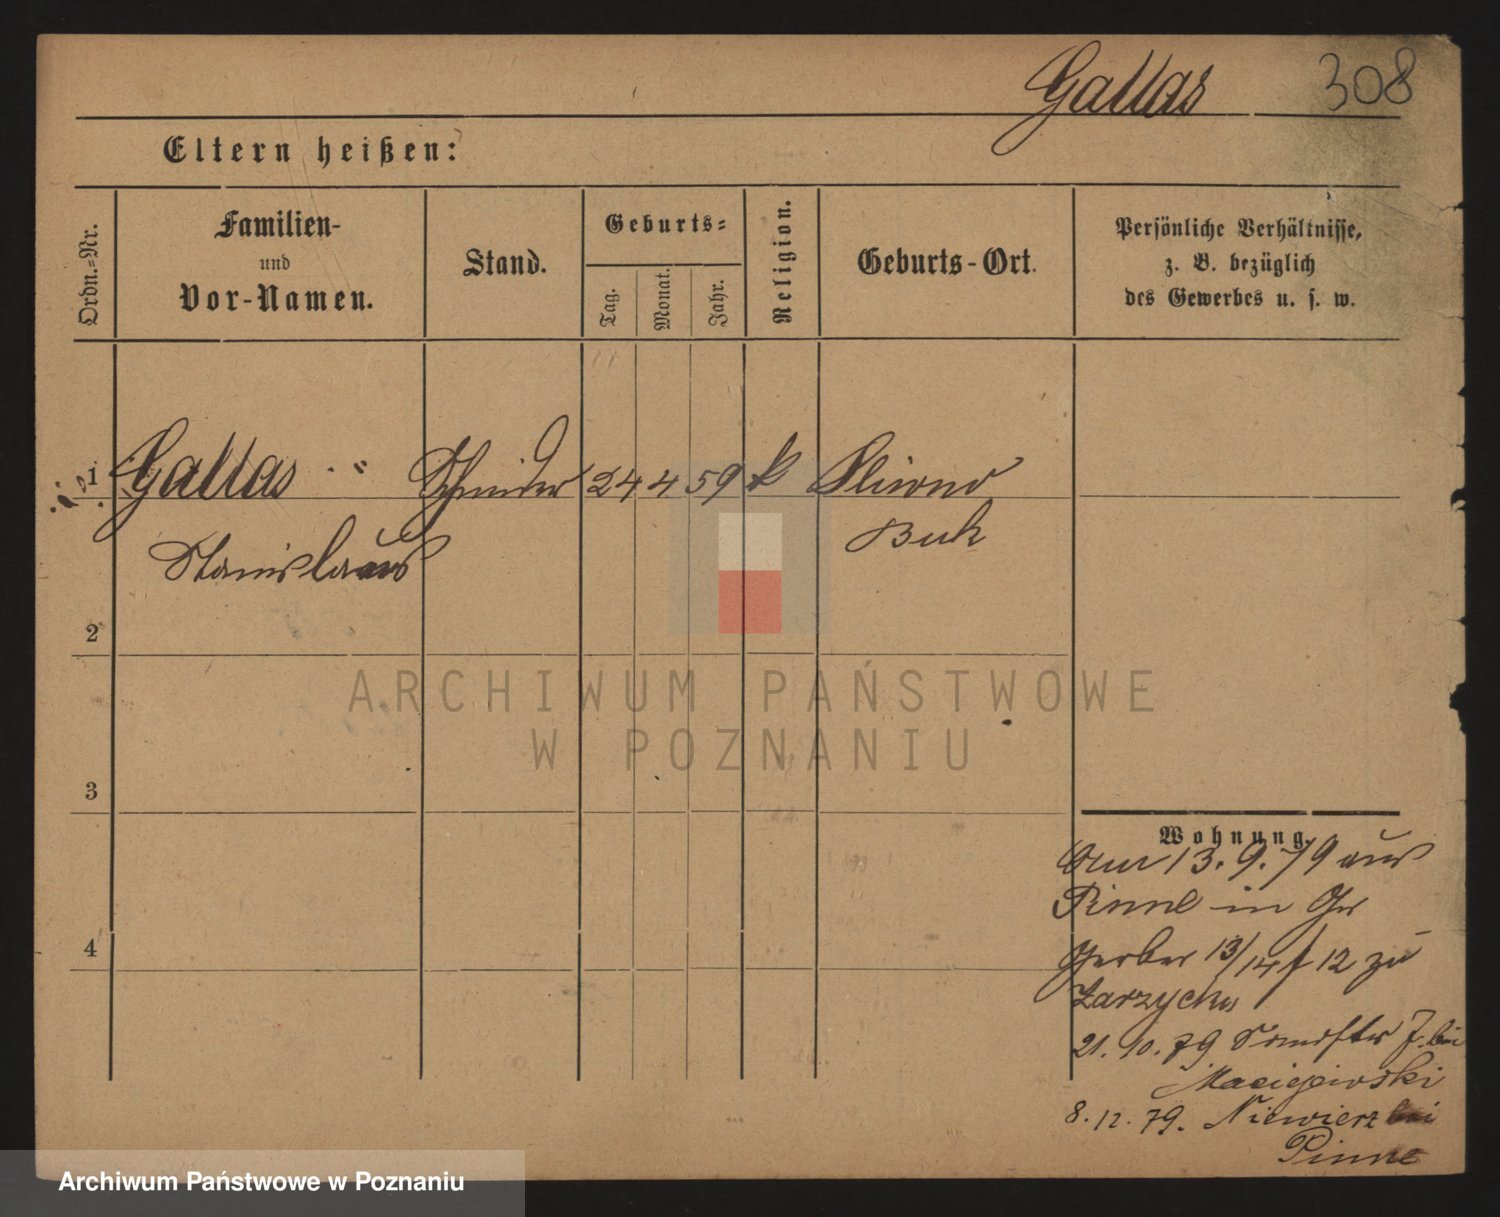 Gallas 308
Eltern heißen:
Ordn.=Nr.
Familien-
und
Vor-Namen.
Stand.
Geburts=
Tag.
Monat.
Jahr.
Religion.
Geburts-Ort.
Persönliche Verhältnisse,
z. B. bezüglich
des Gewerbes u. s. w.
1 Gallas Schneider 24 4 59 k Sliwno
Stanislaus Buk
2
ARCHIWUM PAŃSTWOWE
W POZNANIU
3
Wohnung.
13.9.79 aus
Pinne in
Gerber 13/14 12 zu
Zarzycki
21.10.79 7. bei
Maciejewski
8.12.79. Niewierz bei
Pinne
4
Archiwum Państwowe w Poznaniu